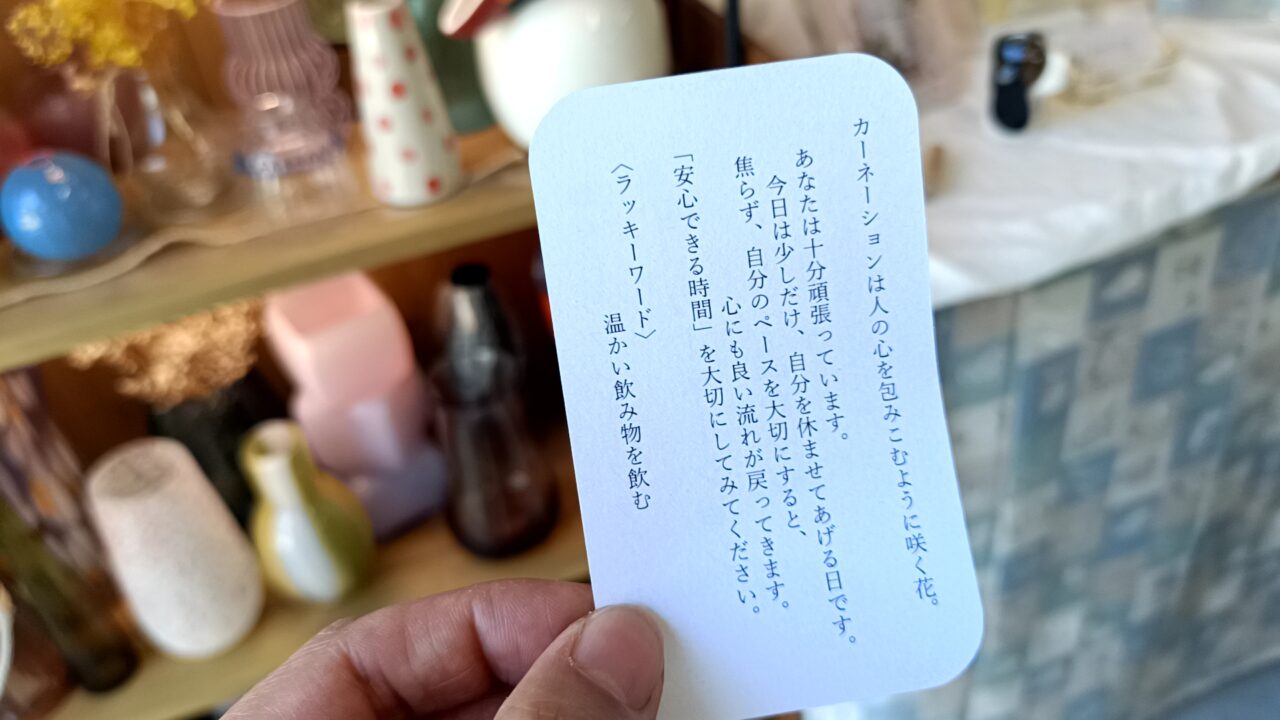 カーネーションは人の心を包みこむように咲く花。
あなたは十分頑張っています。
今日は少しだけ、自分を休ませてあげる日です。
焦らず、自分のペースを大切にすると、
心にも良い流れが戻ってきます。
「安心できる時間」を大切にしてみてください。
〈ラッキーワード〉
温かい飲み物を飲む